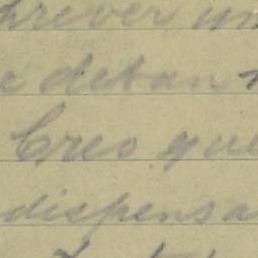 hrever un
e deban
Creo que
dispensa